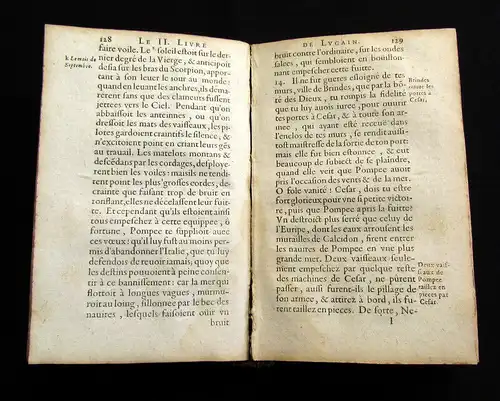 128 LE II. LIVRE
faire voile. Le k soleil estoit sur le der-
k Le mois de
Septembre.
nier degré de la Vierge, & anticipoit
desia sur les bras du Scorpion, appor-
tant à son leuer le iour au monde:
quand en leuant les anchres, ils déma-
rerent sans que des clameurs fussent
jettées vers le Ciel. Pendant qu'on
abbaissoit les antennes, ou qu'on
dressoit les mats des vaisseaux, les pi-
lotes gardoient craintifs le silence, &
n'excitoient point en criant leurs gés
au trauail. Les matelots montans &
descédans par les cordages, desployе-
rent bien les voiles: mais ils ne tendi-
rent point les plus grosses cordes, de
crainte que faisant trop de bruit en
confians, elles ne décelassent leur fuit-
te. Et cependant qu'ils estoient ainsi
tous empeschez à cette equippée, ô
fortune, Pompee te supplioit auec
ces vœux: qu'il luy fust au moins per-
mis d'abandonner l'Italie, que tu luy
defendois de reuoir iamais; quoy que
les destins pouuoient à peine consen-
tir à ce bannissement: car la mer qui
flottoit à longues vagues, murmu-
roit au loing, sillonnee par le bec des
nauires, lesquels faisoient ouïr vn
bruit
DE LVCAIN. 129
bruit contre l'ordinaire, sur les ondes
salees, qui sembloient en boüillon-
nant empescher cette fuitte.
14. Il ne fut guere esloigné de tes
murs, ville de Brindes, que par la bõ-
té des Dieux, tu rompis la fidelité
que tu luy auois iuree, pour ouurir
tes portes à Cesar, & à toute son ar-
mee, qui ayant esté receuë dans
l'enclos de tes murs, se rendit aussi-
tost maistresse de la sortie de ton port:
mais elle fut bien estonnee, & eut
beaucoup de subiect de se plaindre,
quand elle veit que Pompee auoit
pris l'occasion des vents & de la mer.
O fole vanité! Cesar, dois tu estre
fort glorieux pour vne si petite victoi-
re, puis que Pompee apres la fuitte?
Vn destroict plus serré que celuy de
l'Euripe, dont les eaux arrousent les
murailles de Calcidon, firent entrer
les nauires de Pompee en vne plus
grande mer. Deux vaisseaux seule-
ment empeschez par quelque reste
des machines de Cesar, ne pûrent
passer, aussi furent-ils le pillage de
son armee, & attirez à bord, ils fu-
rent taillez en pieces. De sorte, Ne-
I
Brindes
ouure les
portes à
Cesar.
Deux vais-
seaux de
Pompee
taillez en
pieces par
Cesar.